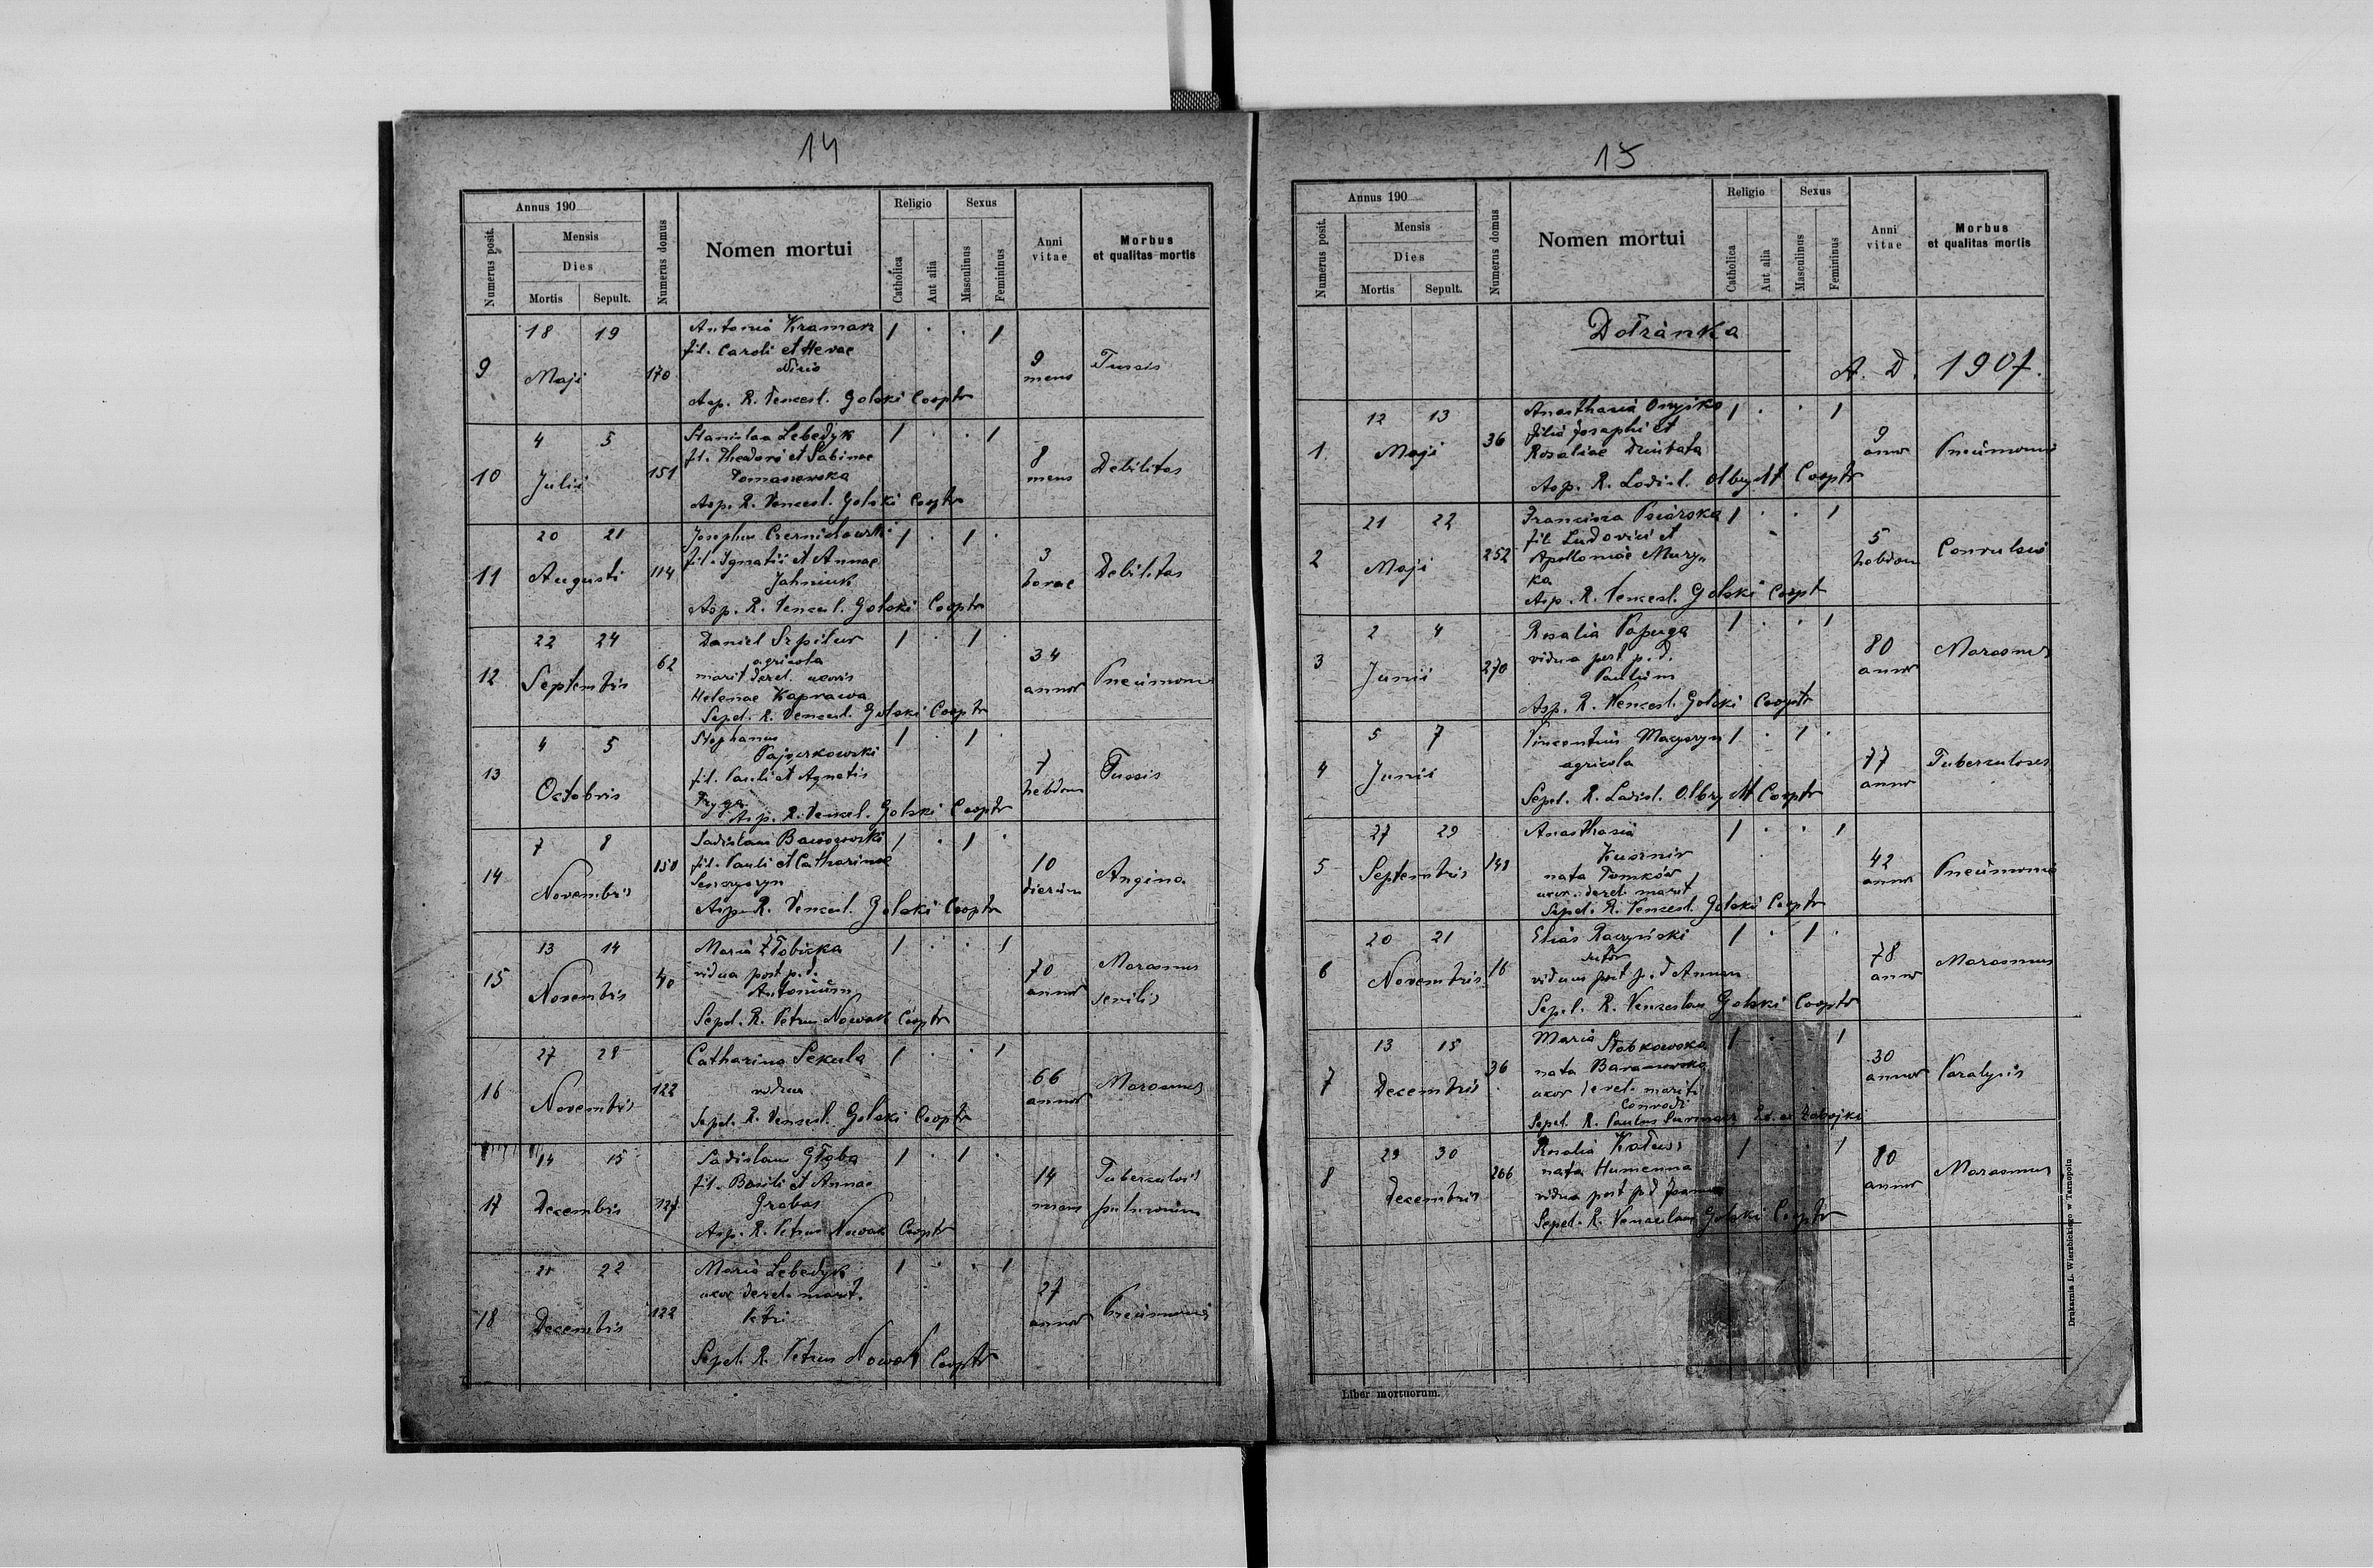 14
Annus 190
Numerus posit.
Mensis
Dies
Mortis
Sepult.
Numerus domus
Nomen mortui
Religio
Catholica
Aut alia
Sexus
Masculinus
Femininus
Anni vitae
Morbus
et qualitas mortis
18 19 Antonia Kramarz 1 . . 1
fil. Caroli et Hevae
9 Maji 170 9 mens Tussis
Asp. R. Vencesl. Golski Cooptr
4 5 Stanislaa Lebedyk 1 . . 1
fil. Theodori et Sabinae
10 Julii 151 Tomaszewska 8 mens Debilitas
Asp. R. Vencesl. Golski Cooptr
20 21 Josephus 1 . 1 .
fil. Ignatii et Annae
11 Augusti 114 Jahniuk 3 horae Debilitas
Asp. R. Vencesl. Golski Cooptr
22 24 Daniel Szpitur 1 . 1 .
agricola
62 marit derel. uxoris 34
12 Septembris Helenae Kaprawa annor Pneumonia
Sepel. R. Vencesl. Golski Cooptr
4 5 Stephanus 1 . 1 .
Pajączkowski
13 fil. Pauli et Agnetis 7 Tussis
Octobris Fryga hebdom
Asp. R. Vencesl. Golski Cooptr
7 8 Ladislaus 1 . 1 .
150 fil. Pauli et Catharinae 10
14 Novembris dierum Angina
Asp. R. Vencesl. Golski Cooptr
13 14 Maria Żłobicka 1 . . 1
vidua post p. d. 70 Marasmus
15 Novembris 40 Antonium annor senilis
Sepel. R. Petrus Nowak Cooptr
27 28 Catharina Sekula 1 . . 1
16 Novembris 122 vidua 66 annor Marasmus
Sepel. R. Vencesl. Golski Cooptr
14 15 Ladislaus Głąba 1 . 1 .
fil. Basili et Annae 14 Tuberculosis
17 Decembris 127 Grabas mens pulmonum
Asp. R. Petrus Nowak Cooptr
21 22 Maria Lebedyk 1 . . 1
uxor derel. marit. 27
18 Decembris 122 Petri annor Pneumonia
Sepel. R. Petrus Nowak Cooptr
15
Annus 190
Numerus posit.
Mensis
Dies
Mortis
Sepult.
Numerus domus
Nomen mortui
Religio
Catholica
Aut alia
Sexus
Masculinus
Femininus
Anni vitae
Morbus
et qualitas mortis
Dołżanka
A. D. 1907.
12 13 Anasthasia Onyśko 1 . . 1
36 filia Josephi et 9
1 Maji Rosaliae annor Pneumonia
Asp. R. Ladisl. Olbrycht Cooptr
21 22 Francisca 1 . . 1
fil. Ludovici et 5
2 Maji 252 Apolloniae Mury„ hebdom Convulsio
ka
Asp. R. Vencesl. Golski Coopt
2 4 Rosalia Papuga 1 . . 1
vidua post p. d. 80
3 Junii 270 Paulum annor Marasmus
Asp. R. Vencesl. Golski Cooptr
5 7 Vincentius 1 . 1 .
agricola 77 Tuberculosis
4 Junii annor
Sepel. R. Ladisl. Olbrycht Cooptr
27 29 Anasthasia 1 . . 1
Kusznir 42
5 Septembris 148 nata Tomków annor Pneumonia
uxor. derel. marit
Sepel. R. Vencesl. Golski Cooptr
20 21 Elias Raczyński 1 . 1 .
sutor 78
6 Novembris 16 viduus post p. d Annam annor Marasmus
Sepel. R. Venceslaus Golski Cooptr
13 15 Maria Słobkowska 1 . . 1
36 nata Baranowska 30
7 Decembris uxor derel. mariti annor Paralysis
Conradi
Sepel. R. Paulus
29 30 Rosalia 1 . . 1
266 nata Humenna 80
8 Decembris vidua post p d Joannem annor Marasmus
Sepel. R. Venceslaus Golski Cooptr
Liber mortuorum.
Drukarnia L. Wierzbickiego w Tarnopolu